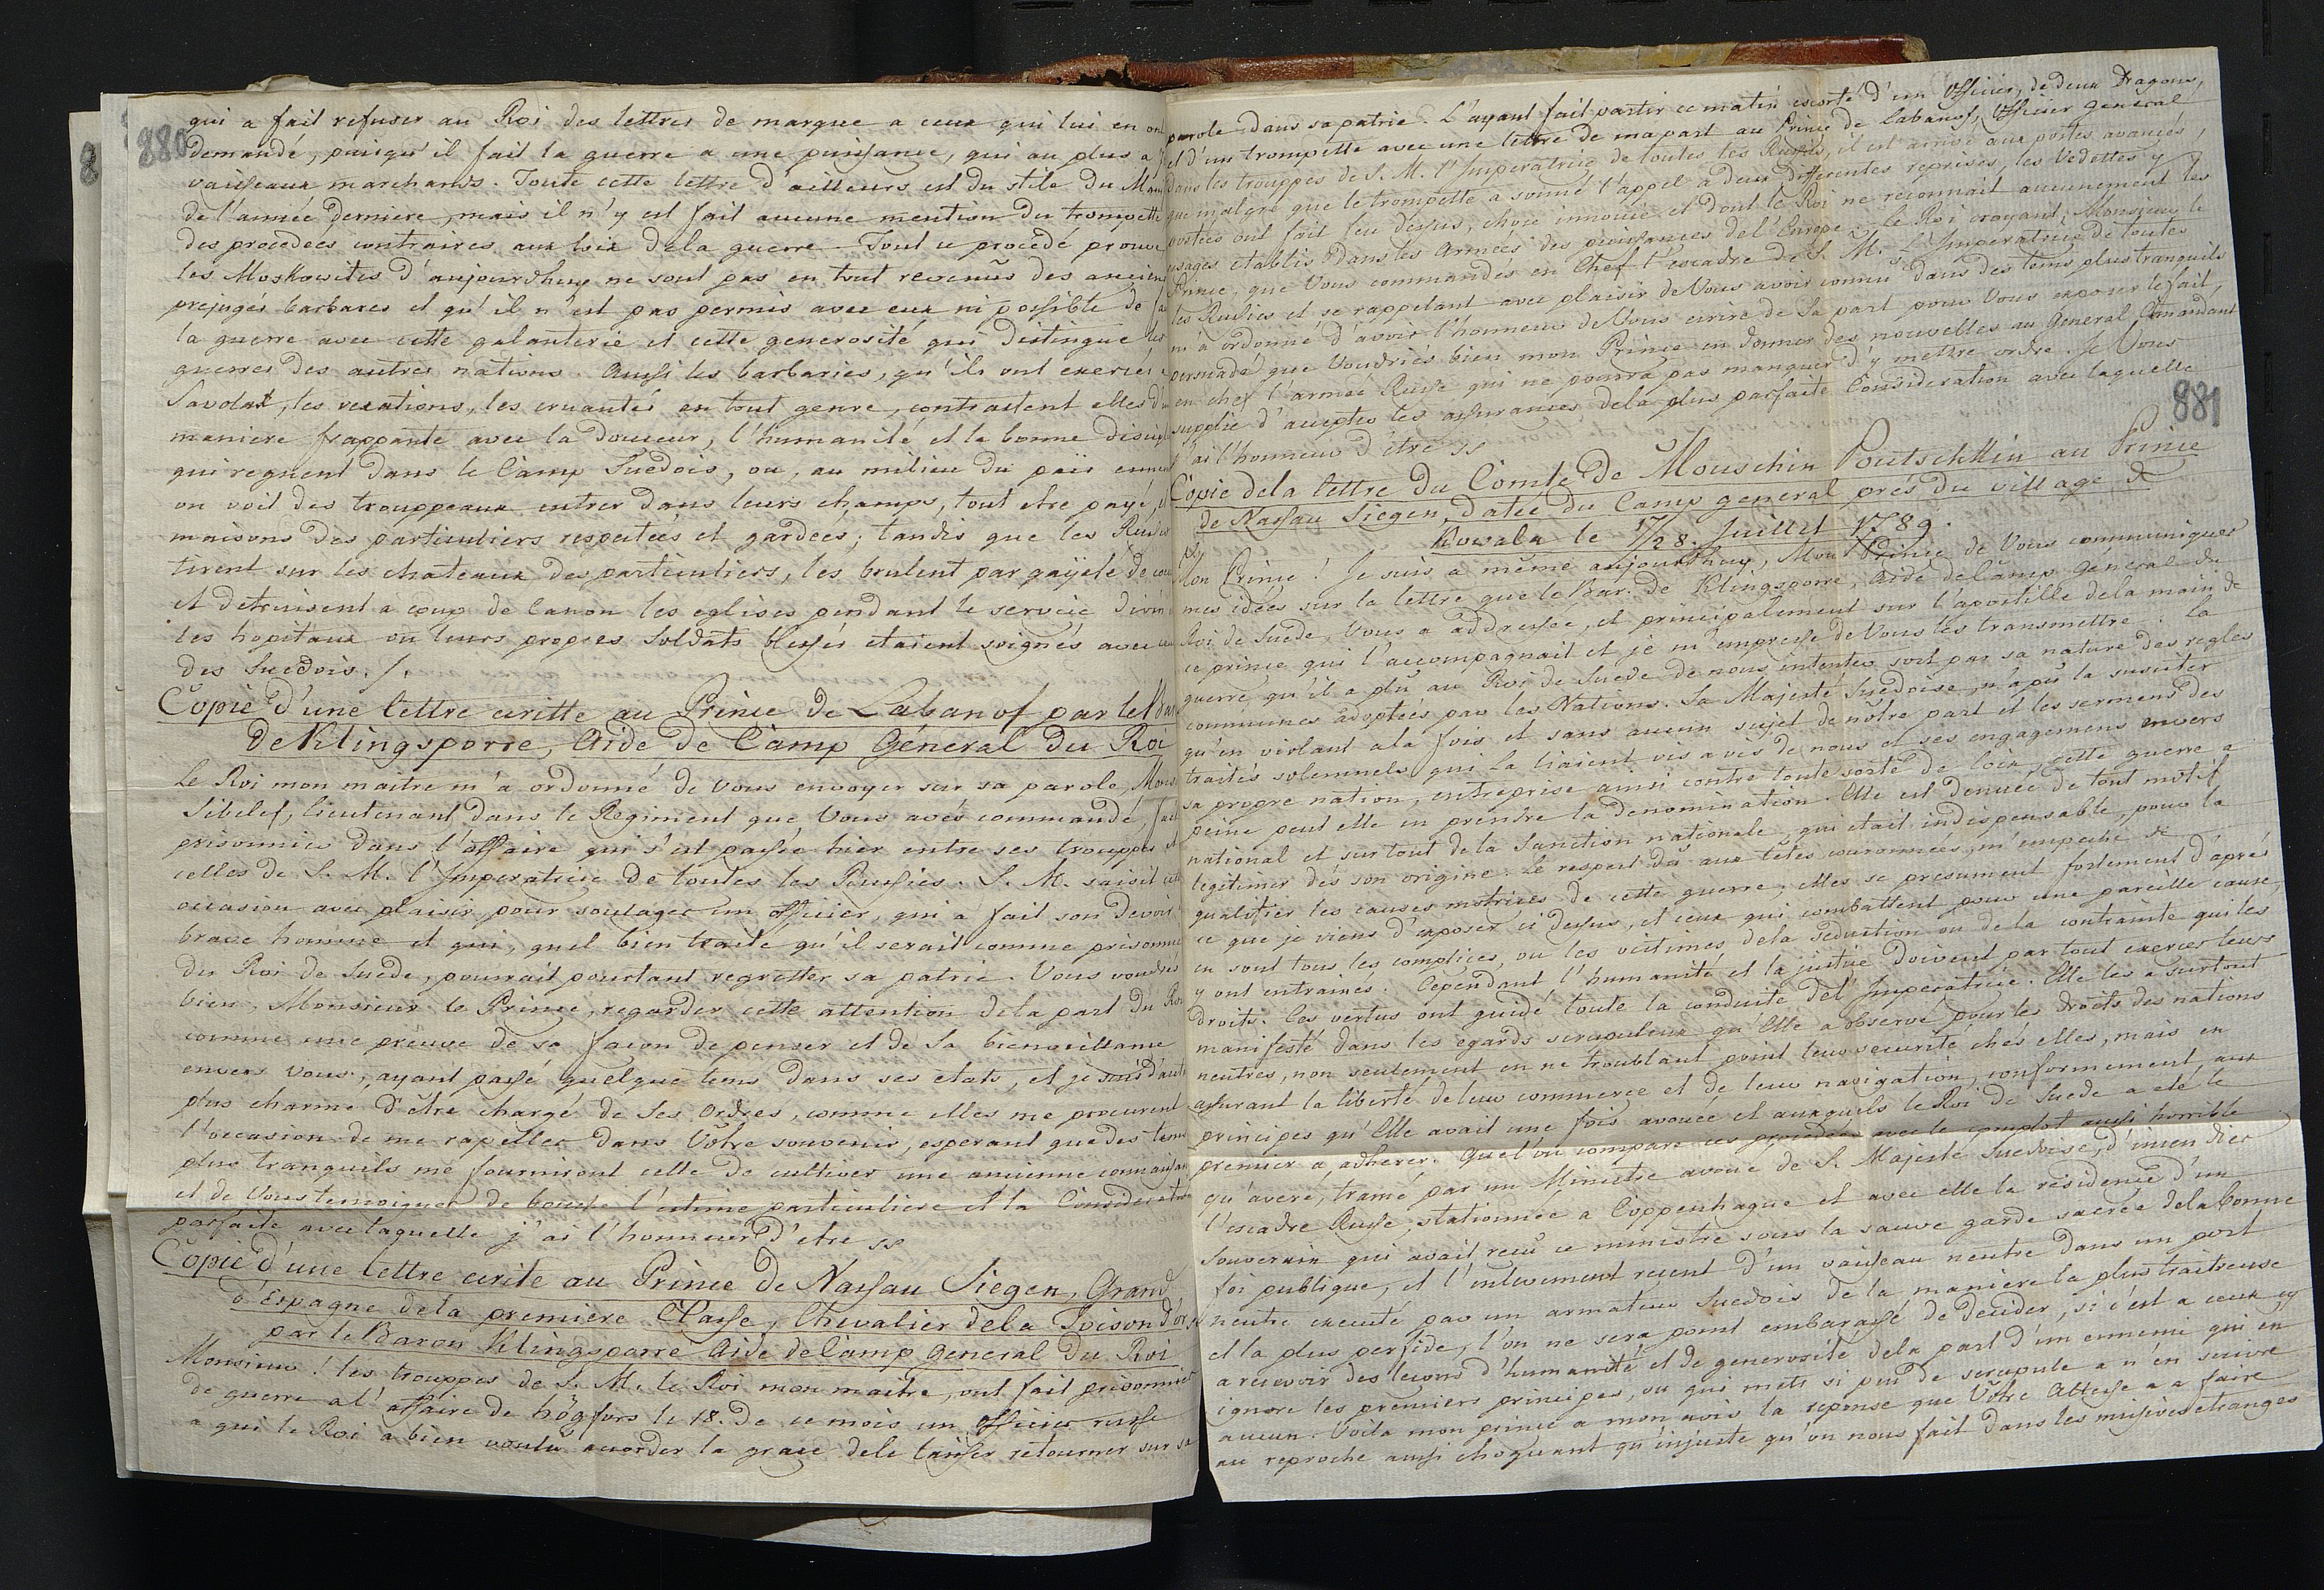 8
880
qui a fait refuser au Roi des lettres de marque a ceux qui lui en ont
demandé, puisqu'il fait la guerre a une puissance, qui au plus a
vaisseaux marchands. Toute cette lettre d'ailleurs est du stile du
de l'année derniere, mais il n'y est fait aucune mention du trompette
des procedées contraires aux loix de la guerre. Tout ce procedé prouve
les Moskowites d'aujourdhuy ne sont pas en tout revenûs des anciens
prejugés barbares et qu'il n'est pas permis avec eux ni possible de
la guerre avec cette galanterie et cette generosité qui distingue les
guerres des autres nations. Aussi les barbaries, qu'ils ont exercés
Savolax, les vexations, les cruautés en tout genre, contrastent elles d'u
maniere frappante avec la douceur, l'humanité et la bonne discipl
qui regnent dans le Camp Suedois, ou, au milieu du païs ennemi
on voit des trouppeaux entrer dans leurs champs, tout etre payé, et
maisons des particuliers respectées et gardées; tandis que les Russes
tirent sur les chateaux des particuliers, les brulent par gayeté de coeu
et detruisent a coup de Canon les eglises pendant le service divin
les hopitaux ou leurs propres Soldats blessés etaient soignés avec ceu
des Suedois. /.
Copie d'une lettre ecritte au Prince de Labanof par le Bar
de Klingsporre, Aide de Camp Général du Roi
Le Roi mon maitre m'a ordonné de vous envoyer sur sa parole, Mons
Sibelef, Lieutenant dans le Regiment que Vous avés commandé, fait
prisonnier dans l'affaire qui s'est passée hier entre ses trouppes et
celles de S. M. l'Imperatrice de toutes les Russies. S. M. saisit cett
occasion avec plaisir pour soulager un officier, qui a fait son devoir
brave homme et qui, quel bien traité qu'il serait comme prisonnie
du Roi de Suede, pourrait pourtant regretter sa patrie. Vous voudrés
bien, Monsieur le Prince, regarder cette attention de la part du Roi
comme une preuve de sa façon de penser et de Sa bienveillance
envers vous, ayant passé quelque tems dans ses etats, et je suis d'aut
plus charmé d'être chargé de Ses Ordres, comme elles me procurent
l'occasion de me rapeller dans Vôtre souvenir, esperant que des tems
plus tranquils me fourniront celle de cultiver une ancienne connaissan
et de Vous temoigner de bouche l'estime particuliere et la Consideration
parfaite avec laquelle j'ai l'honneur d'etre ss
Copie d'une lettre ecrite au Prince de Nassau Siegen, Grand
d'Espagne de la premiere Classe, Chevalier de la Toison d'or
par le Baron Klingsporre Aide de Camp General du Roi
Monsieur! les trouppes de S. M. le Roi mon maitre, ont fait prisonnier
de guerre a l'affaire de högfors le 18. de ce mois un officier russe
a qui le Roi a bien voulû accorder la grace de le laisser retourner sur sa
parole dans sa patrie. L'ayant fait partir ce matin escorté d'un Officier, de deux Dragons,
et d'un trompette avec une lettre de ma part au Prince de Labanof, Officier general
dans les trouppes de S. M. l'Imperatrice de toutes les Russies, il est arrivé aux postes avancés,
que malgré que le trompette a sonné l'appel a deux differentes reprises, les Vedettes y
postées ont fait feu dessus, chose innouie et dont le Roi ne reconnait aucunement les
usages etablis dans les Armées des puissances de l'Europe. Le Roi croyant, Monsieur le
Prince, que Vous commandes en Chef l'escadre de S. M. l'Imperatrice de toutes
les Russies et se rappelant avec plaisir de Vous avoir connu dans des tems plus tranquils
m'a ordonné d'avoir l'honneur de Vous ecrire de Sa part pour Vous exposer le fait,
persuadé que Voudriés bien mon Prince en donner des nouvelles au General Comandant
en chef l'armée Russe qui ne pourra pas manquer d'y mettre ordre. Je Vous
supplie d'accepter les assurances de la plus parfaite Consideration avec laquelle
j'ai l'honneur d'être ss
881
Copie de la lettre du Comte de Mouschin Poutschkin au Prince
de Nassau Siegen, datée du Camp general prés du village de
Kowala le 17/28. Juillet 1789.
Mon Prince! Je suis a même aujourdhuy, Mon Prince de Vous communiquer
mes idées sur la lettre que le Bar. de Klingsporre, Aide de Camp Général du
Roi de Suede, Vous a addressée, et principalement sur l'apostille de la main de
ce prince qui l'accompagnait et je m'empresse de Vous les transmettre. La
guerre, qu'il a plû au Roi de Suede de nous intenter sort par sa nature des regles
communes adoptées par les Nations. Sa Majesté Suedoise, n'a pû la susciter
qu'en violant a la fois et sans aucun sujet de nôtre part et les sermens des
traités solemnels qui La liaient vis a vis de nous et ses engagemens envers
sa propre nation, entreprise ainsi contre toute sorte de loix, cette guerre a
peine peut elle en prendre la denomination. Elle est denuée de tout motif
national et sur tout de la Sanction nationale, qui etait indispensable, pour la
legitimer dés son origine. Le respect dû aux têtes couronnées, m'empeche de
qualifier les causes motrices de cette guerre; elles se presument fortement d'aprés
ce que je viens d'exposer ci dessus, et ceux qui combattent pour une pareille cause,
en sont tous les complices, ou les victimes de la seduction ou de la contrainte qui les
y ont entrainés. Cependant l'humanité et la justice doivent par tout exercer leurs
droits. Ces vertus ont guidé toute la conduite de l'Imperatrice. Elle les a surtout
manifesté dans les egards scrupuleux qu'Elle a observé pour les droits des nations
neutres, non seulement en ne troublant point leur securité chés elles, mais en
assurant la liberté de leur commerce et de leur navigation, conformement, aux
principes qu'Elle avait une fois avouée et auxquels le Roi de Suede a eté le
premier a adherer. Quel'on compare ces procedées avec le complot aussi horrible
qu'averé, tramé par un Ministre avoué de S. Majesté Suedoise, d'incendier
l'escadre Russe, stationnée a Coppenhague et avec elle la residence d'un
Souverain qui avait reçu ce ministre sous la sauve garde sacrée de la bonne
foi publique, et l'enlevement recent d'un vaisseau neutre dans un port
neutre executé par un armateur Suedois de la maniere la plus traitreuse
et la plus perfide, l'on ne sera point embarassé de decider, si c'est a ceux cy
a recevoir des leçons d'humanité et de generosité de la part d'un ennemi qui en
ignore les premiers principes, ou qui mets si peu de scrupule a n'en suivre
aucun. Voila mon prince a mon avis la reponse que Vôtre Altesse a a faire
au reproche aussi choquant qu'injuste qu'on nous fait dans les missives etranges